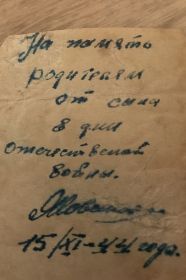 На память
родителям
от сына
в дни
отечественой
войны.
15/XI-44 года.